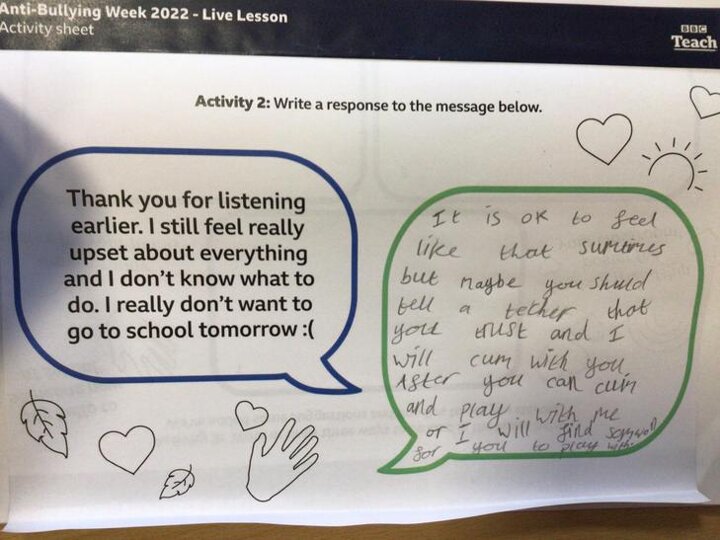 Anti-Bullying Week 2022 - Live Lesson
Activity sheet
BBC
Teach
Activity 2: Write a response to the message below.
Thank you for listening
earlier. I still feel really
upset about everything
and I don't know what to
do. I really don't want to
go to school tomorrow :(
It is ok to feel
like that sumtimes
but maybe you shuld
tell a tether that
you trust and I
will cum with you.
After you can cum
and play with me
or I will find
for you to play with.